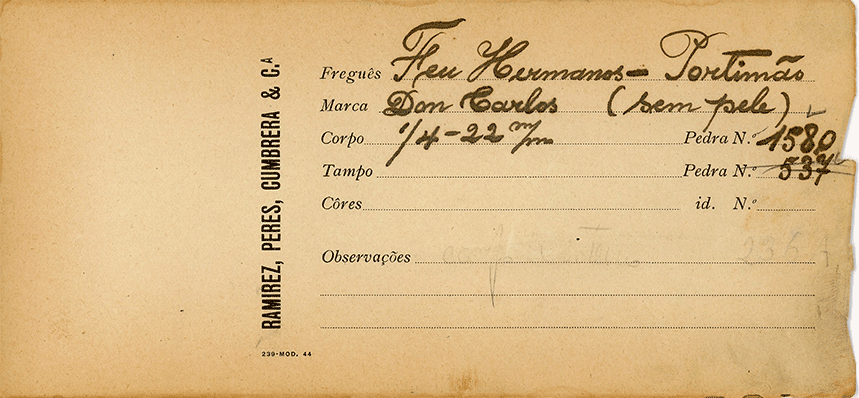 RAMIREZ, PERES, CUMBRERA & C.ᴬ
Freguês Feu Hermanos - Portimão
Marca Don Carlos (sem pele)
Corpo 1/4 - 22 m/m Pedra N.º 1580
Tampo Pedra N.º 537
Côres id. N.º
Observações
239-MOD. 44